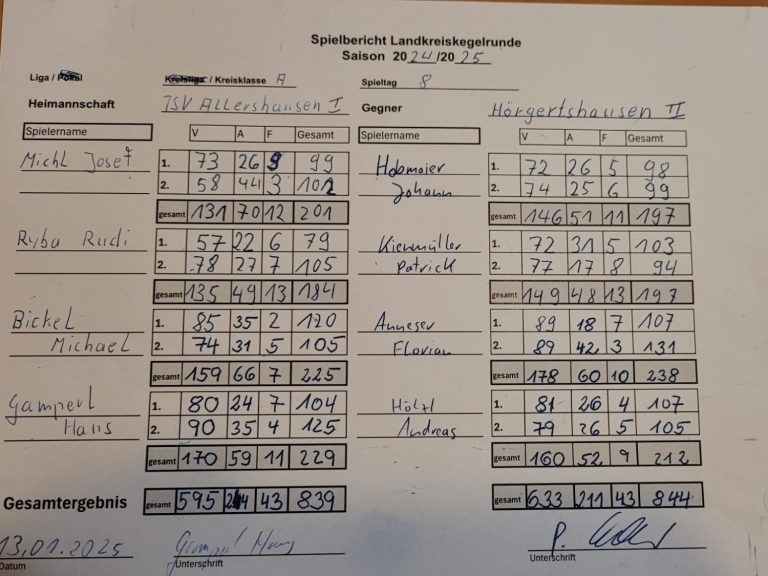 Spielbericht Landkreiskegelrunde
Saison 2024/2025
Liga / Pokal Kreisliga / Kreisklasse A Spieltag 8
Heimannschaft TSV Allershausen I Gegner Hörgertshausen II
Spielername V A F Gesamt Spielername V A F Gesamt
Michl Josef 1. 73 26 9 99 Hobmaier 1. 72 26 5 98
2. 58 44 3 102 Johann 2. 74 25 6 99
gesamt 131 70 12 201 gesamt 146 51 11 197
Ryba Rudi 1. 57 22 6 79 Kienmüller 1. 72 31 5 103
2. 78 27 7 105 Patrick 2. 77 17 8 94
gesamt 135 49 13 184 gesamt 149 48 13 197
Bickel 1. 85 35 2 120 Anneser 1. 89 18 7 107
Michael 2. 74 31 5 105 Florian 2. 89 42 3 131
gesamt 159 66 7 225 gesamt 178 60 10 238
Gamperl 1. 80 24 7 104 Hölzl 1. 81 26 4 107
Hans 2. 90 35 4 125 Andreas 2. 79 26 5 105
gesamt 170 59 11 229 gesamt 160 52 9 212
Gesamtergebnis gesamt 595 244 43 839 gesamt 633 211 43 844
13.01.2025
Datum Unterschrift Unterschrift